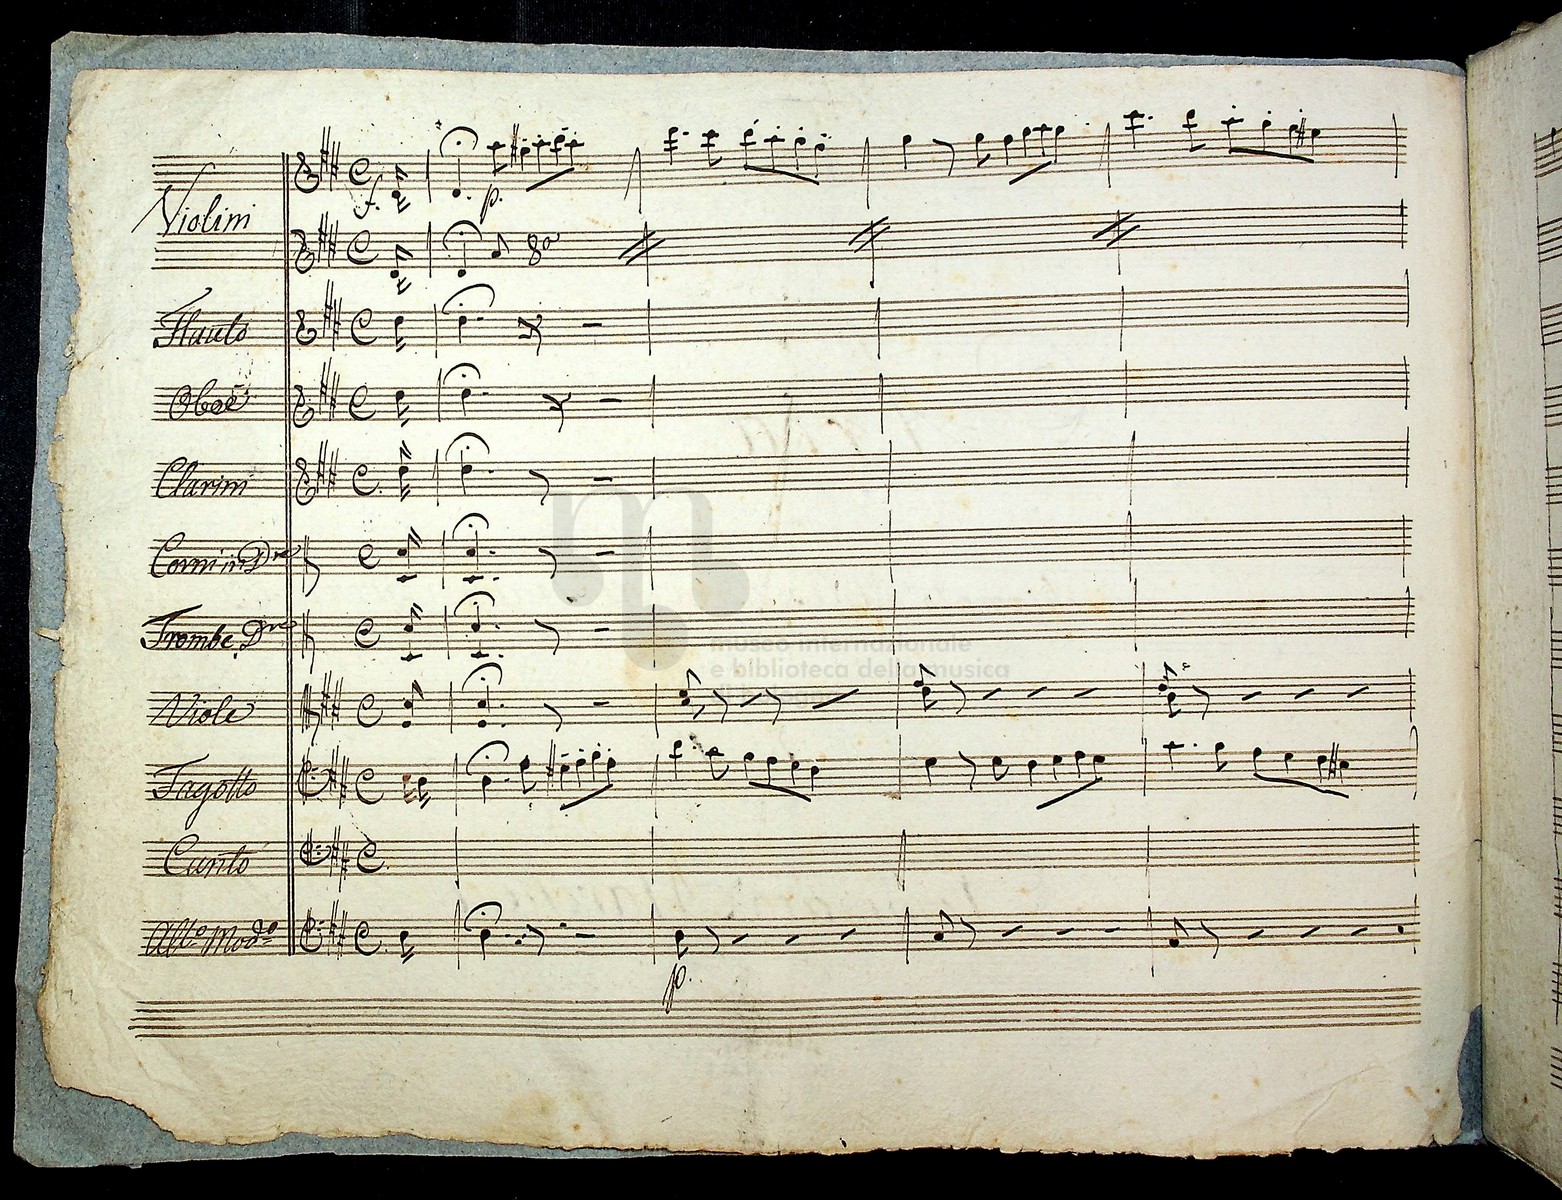 Violini
f.
p.
8a
Flauto
Oboè
Clarini
Corni in Dre
Trombe Dre
Viole
Fagotto
Canto
All.º Mod.º
p.
museo internazionale
e biblioteca della musica